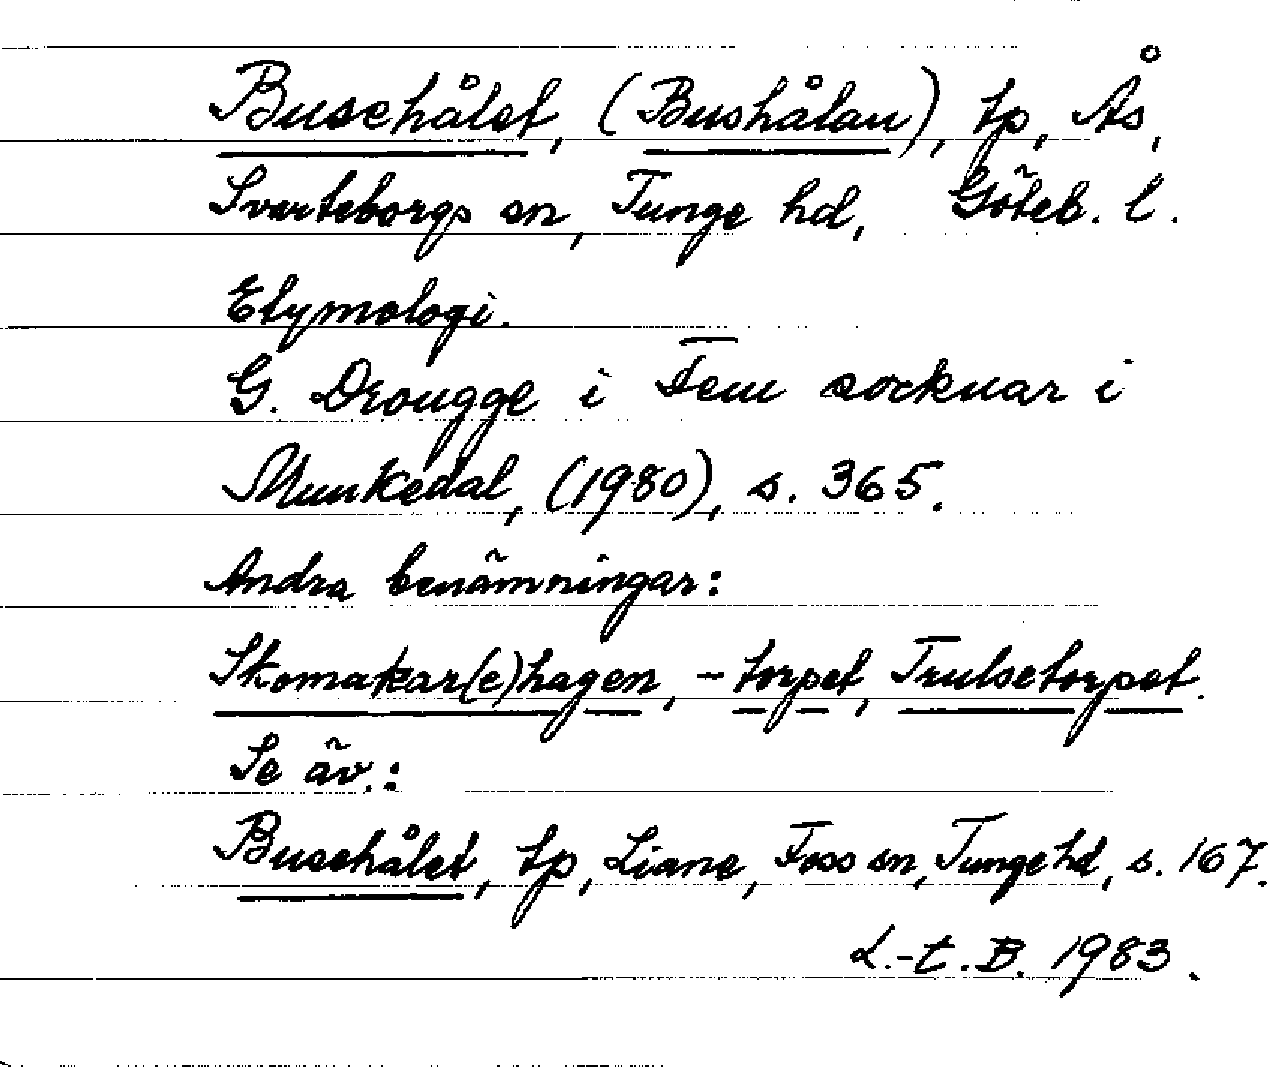 Busehålet, (Bushålan), tp, Ås,
Svarteborgs sn, Tunge hd, Göteb. l.
Etymologi.
G. Drougge i Fem socknar i
Munkedal, (1980), s. 365.
Andra benämningar:
Skomakar(e)hagen, -torpet, Trulsetorpet.
Se äv.:
Busehålet, tp, Liane, Foss sn, Tunge hd, s. 167.
L.-t. B. 1983.